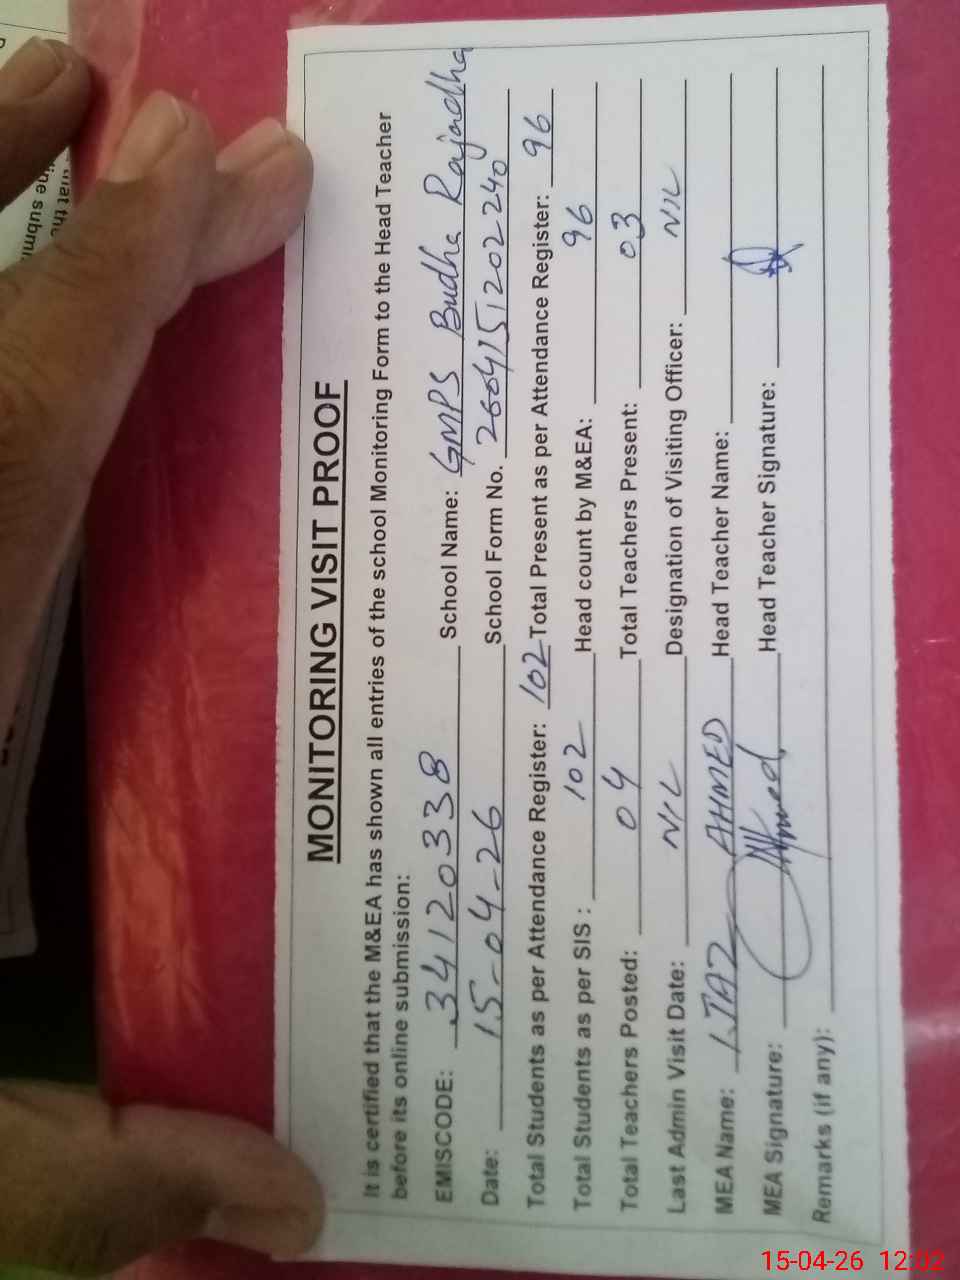 MONITORING VISIT PROOF
It is certified that the M&EA has shown all entries of the school Monitoring Form to the Head Teacher
before its online submission:
EMISCODE: 34120338 School Name: GMPS Budha Rajadha
Date: 15-04-26 School Form No. 2604151202240
Total Students as per Attendance Register: 102 Total Present as per Attendance Register: 96
Total Students as per SIS : 102 Head count by M&EA: 96
Total Teachers Posted: 04 Total Teachers Present: 03
Last Admin Visit Date: NIL Designation of Visiting Officer: NIL
MEA Name: IJAZ AHMED Head Teacher Name:
MEA Signature: Head Teacher Signature:
Remarks (if any):
that the
ine submi
15-04-26 12:02